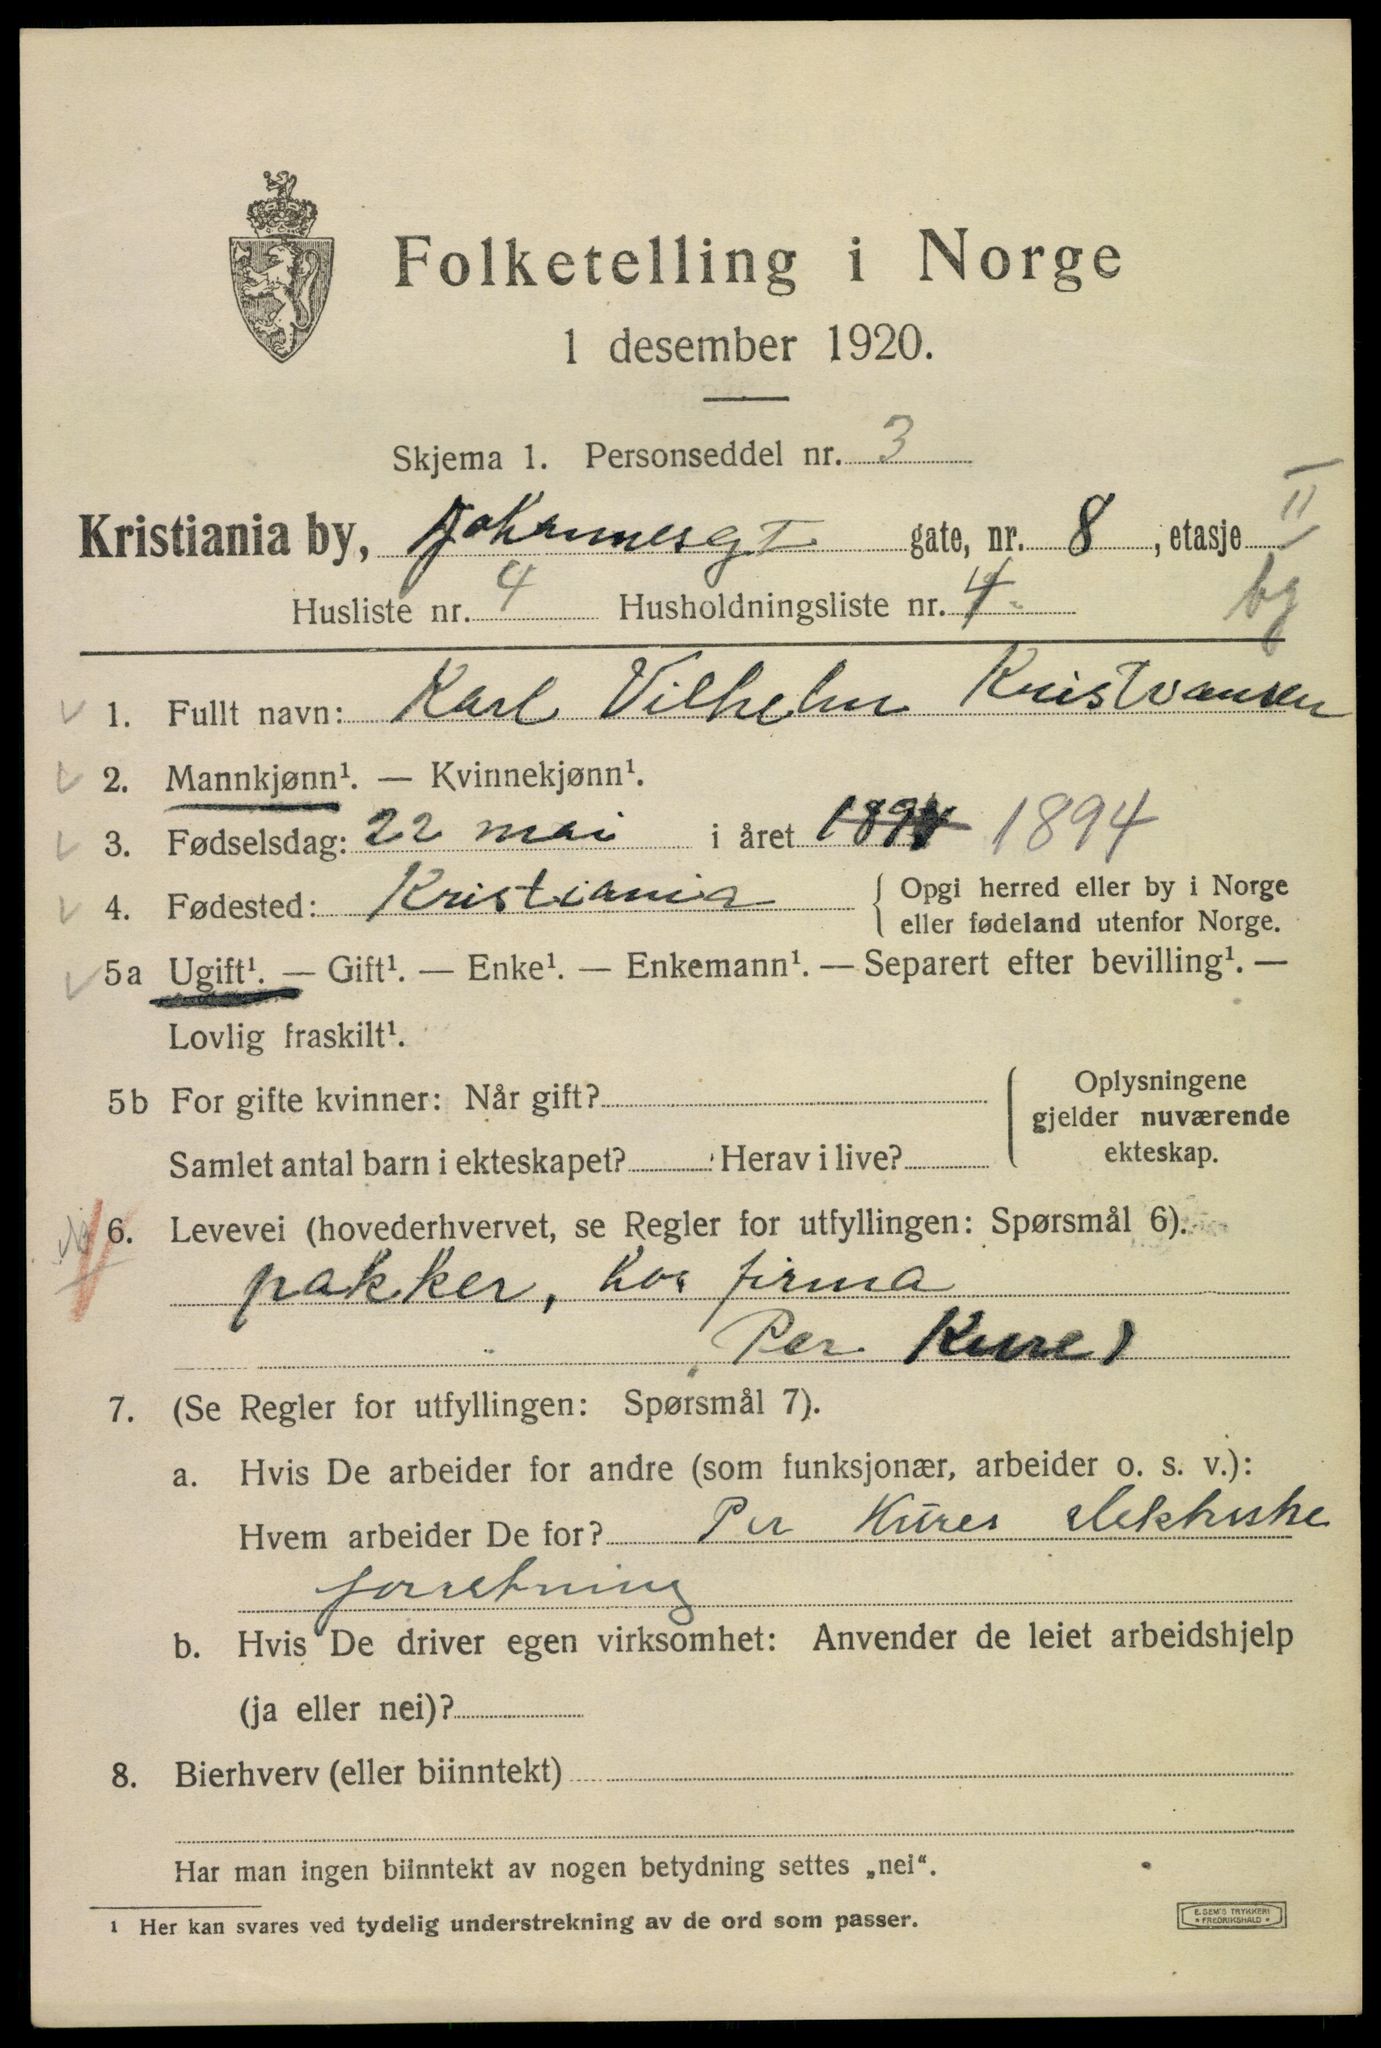 Folketelling i Norge
1 desember 1920.
Skjema 1. Personseddel nr. 3
Kristiania by, Johannesgt gate, nr. 8, etasje II
Husliste nr. 4 Husholdningsliste nr. 4 bg
1. Fullt navn: Karl Vilhelm Kristiansen
2. Mannkjønn¹. — Kvinnekjønn¹.
3. Fødselsdag: 22 mai i året 1894 1894
4. Fødested: Kristiania { Opgi herred eller by i Norge
eller fødeland utenfor Norge.
5a Ugift¹. — Gift¹. — Enke¹. — Enkemann¹. — Separert efter bevilling¹. —
Lovlig fraskilt¹.
5b For gifte kvinner: Når gift?
Samlet antal barn i ekteskapet? Herav i live?
Oplysningene
gjelder nuværende
ekteskap.
6. Levevei (hovederhvervet, se Regler for utfyllingen: Spørsmål 6).
pakker, hos firma
Per Kure
7. (Se Regler for utfyllingen: Spørsmål 7).
a. Hvis De arbeider for andre (som funksjonær, arbeider o. s. v.):
Hvem arbeider De for? Per Kures elektriske
forretning
b. Hvis De driver egen virksomhet: Anvender de leiet arbeidshjelp
(ja eller nei)?
8. Bierhverv (eller biinntekt)
Har man ingen biinntekt av nogen betydning settes „nei“.
¹ Her kan svares ved tydelig understrekning av de ord som passer.
E. SEM'S TRYKKERI
* FREDRIKSHALD *